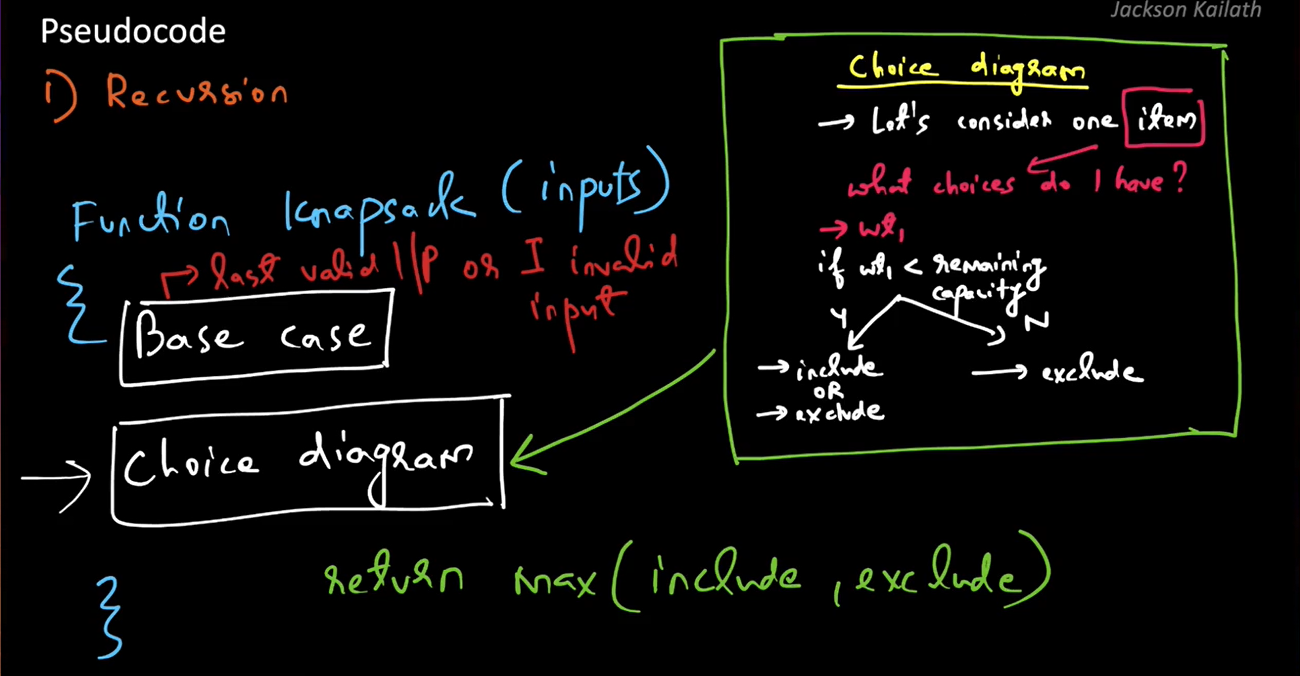 Jackson Kailath
Pseudocode
1) Recursion
Function knapsack (inputs)
{
→ last valid I/P or I invalid
input
Base case
→ Choice diagram
return max(include, exclude)
}
Choice diagram
→ Let's consider one item
what choices do I have?
→ wt₁
if wt₁ < remaining
capacity
Y
N
→ include
OR
→ exclude
→ exclude